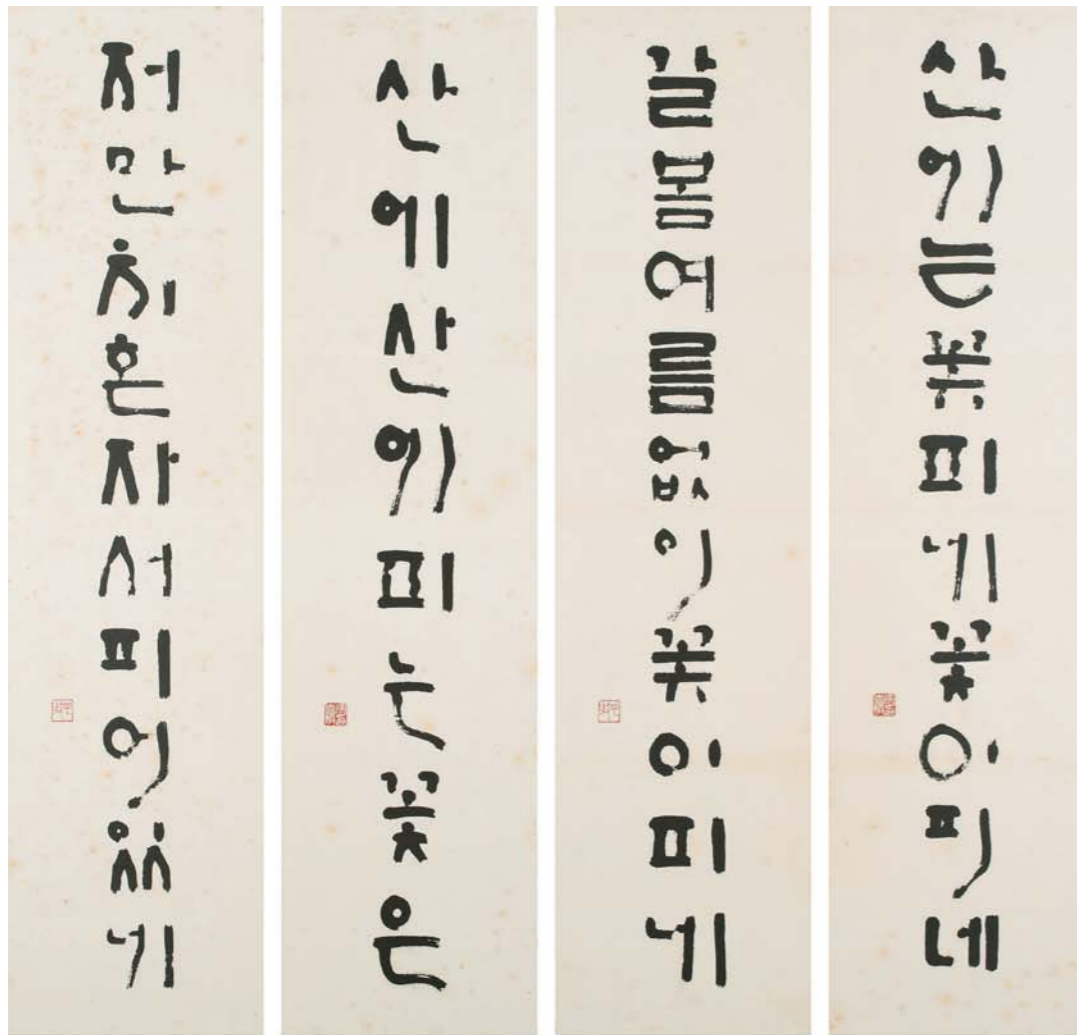 산에는꽃피네꽃이피네
갈봄여름없이꽃이피네
산에산에피는꽃은
저만치혼자서피어있네